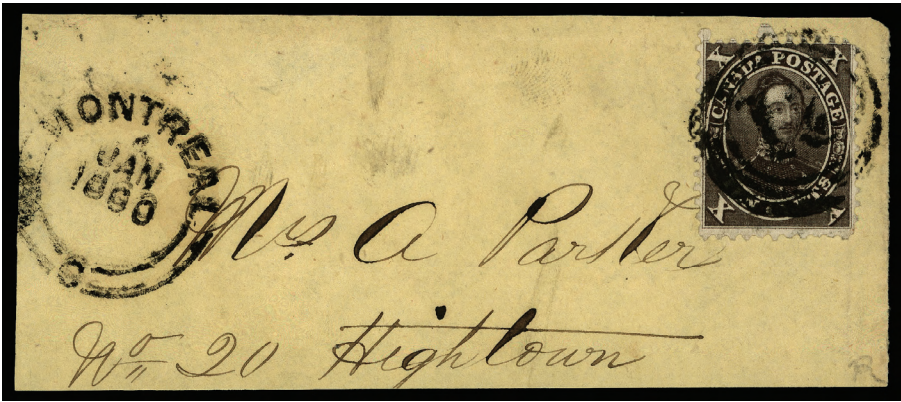 MONTREAL
JAN
1880
C
X CANADA POSTAGE X
X X
Mrs. A Parker
No 20 Hightown
R